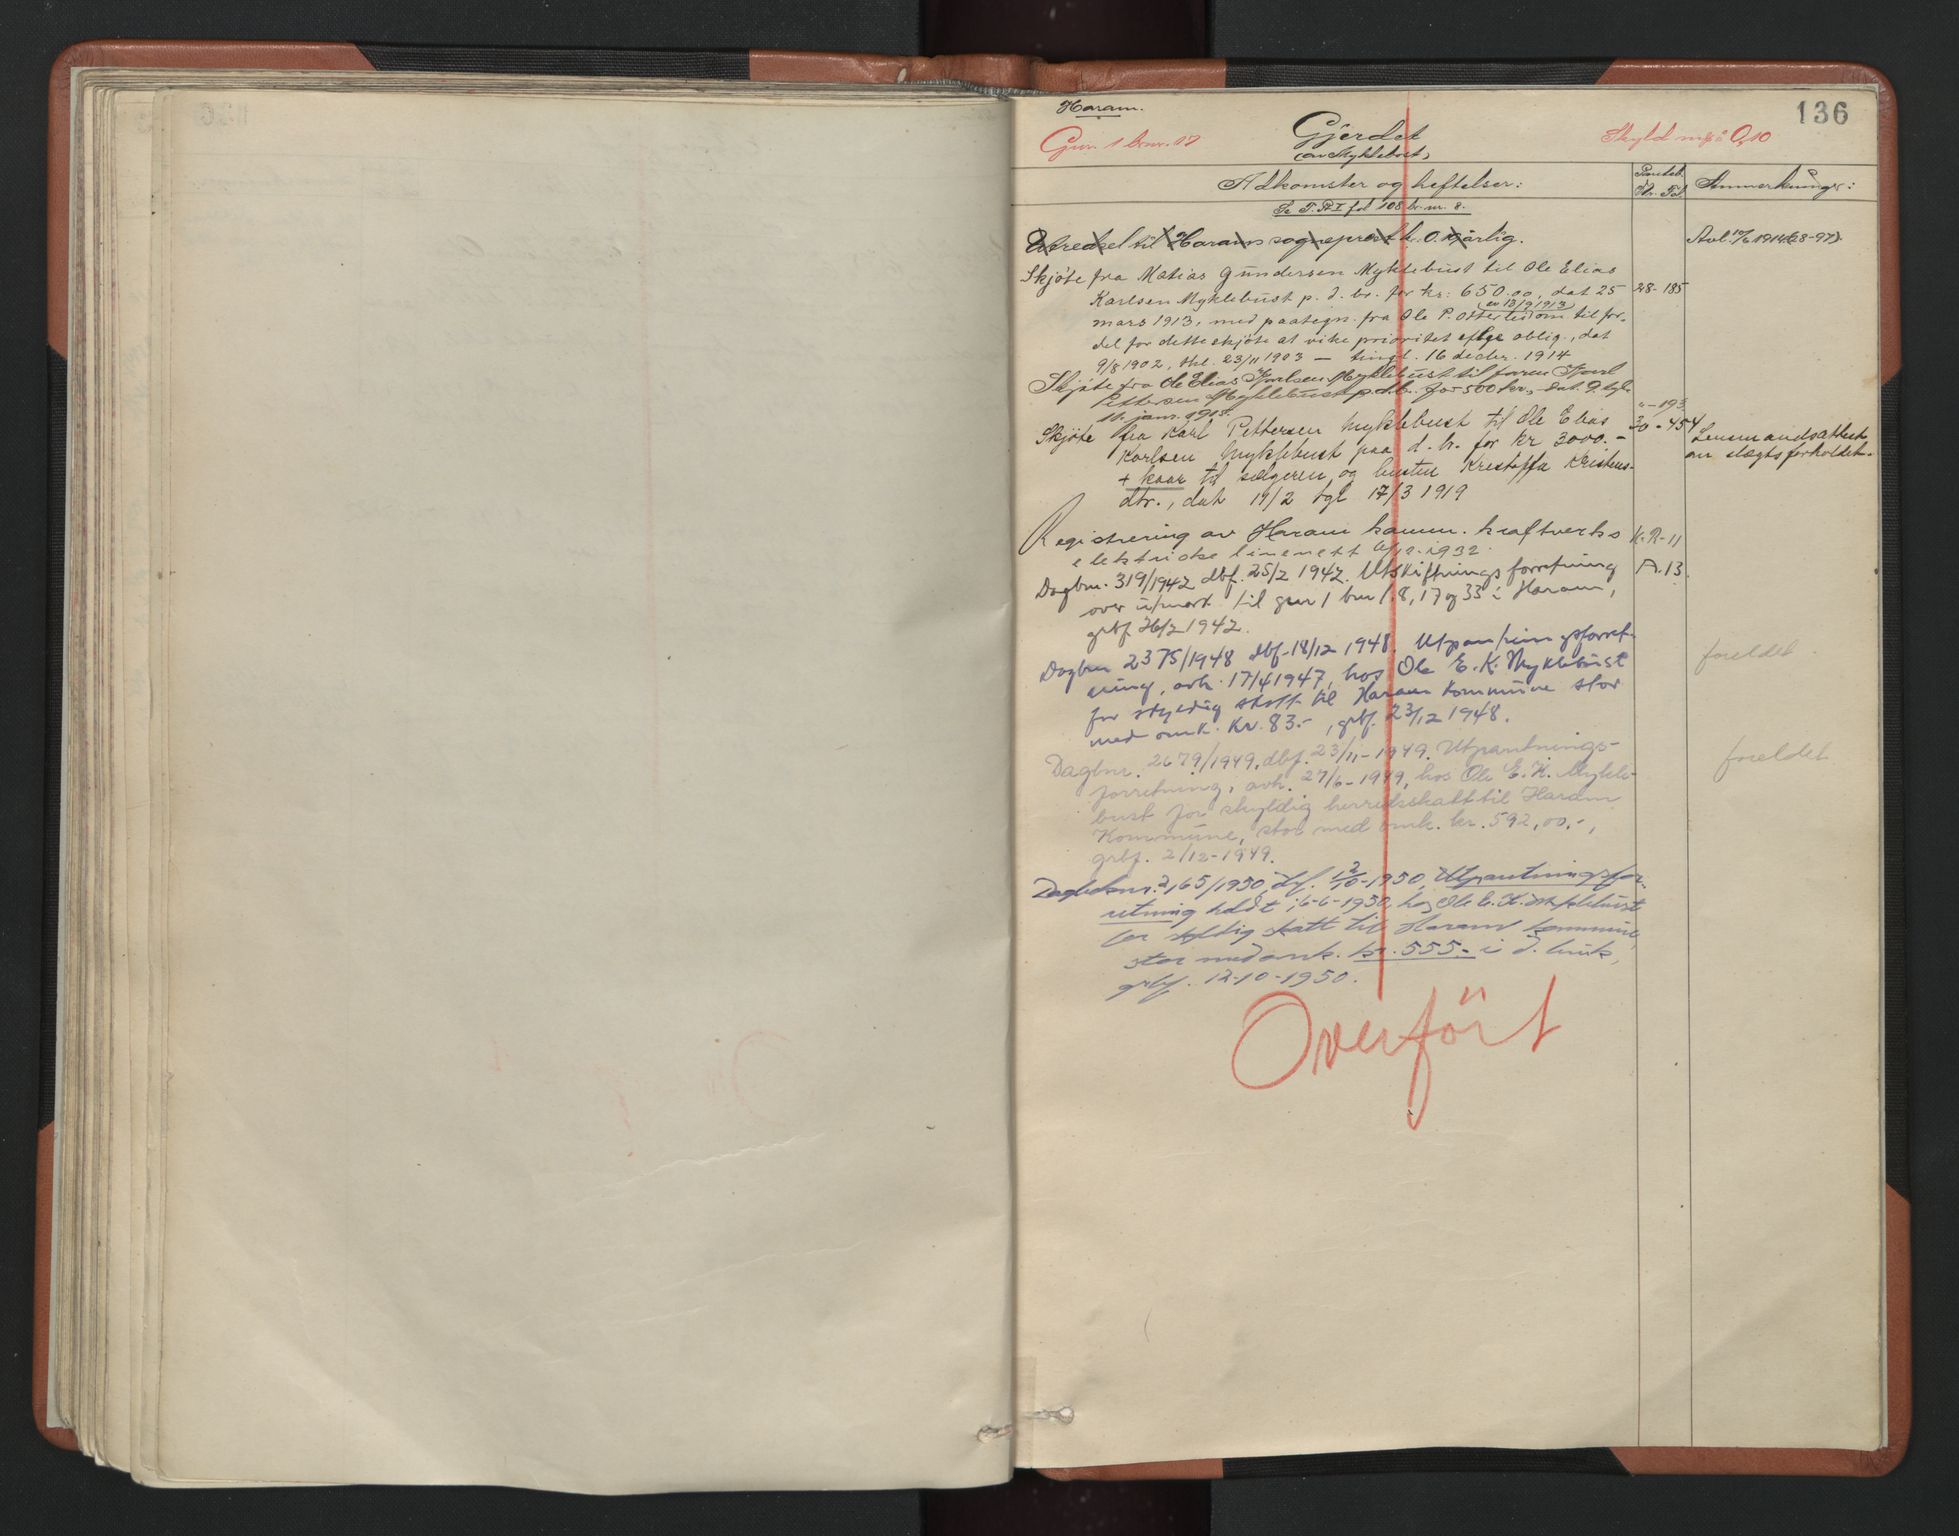 136
Haram.
Gnr. 1 bnr. 17
Gjerdet
(av Myklebost)
Skyld mk 0,10
Adkomster og heftelser:
Panteb.
Nr. Fol.
Anmerkninger:
Se P. R. I fol 108 br. nr. 8.
Utredsel til Harams sogneprest kr. 0. årlig.
Avl. 10/6 1914 (28-97).
Skjöte fra Matias Gundersen Myklebust til Ole Elias
28-185
Karlsen Myklebust p. d. br. for kr: 650.00, dat 25
mars 1913, med paategn. fra Ole P. Otterlei om til for-
av 13/9 1913
del for dette skjöte at vike prioritet oblig., dat
9/8 1902, thl. 23/11 1903 — tingl. 16 decbr. 1914
Skjöte fra Ole Elias Karlsen Myklebust til faren Karl
Pettersen Myklebust p. d. b. for 500 kr., dat. 9. tgl.
"-193
11. jan. 1915.
Skjöte fra Karl Pettersen Myklebust til Ole Elias
30-454
Karlsen Myklebust paa d. br. for kr 3000.-
Lensmandsattest
om slegtsforholdet.
+ kaar til sælgeren og hustru Kristoffa Kristens-
dtr., dat 11/2 tgl 17/3 1919
Registrering av Haram komm. kraftverks
K.R-11
elektriske linenett 1932.
Dagbnr. 319/1942 dbf. 25/2 1942. Utskiftningsforretning
A.13.
over utmark til gnr 1 bnr 1, 8, 17 og 33 i Haram,
grbf 26/2 1942.
Dagbnr 2375/1948 dbf. 18/12 1948. Utpantningsforret-
foreldet.
ning, avh. 17/4 1947, hos Ole E. K. Myklebust
for skyldig skatt til Haram Kommune stor
med omk. Kr. 83.-, grbf. 23/12 1948.
Dagbnr. 2679/1949, dbf. 23/11-1949. Utpantnings-
foreldet
forretning, avh. 27/6-1949, hos Ole E. K. Mykle-
bust for skyldig herredsskatt til Haram
Kommune, stor med omk. kr. 592,00.-,
grbf. 2/12-1949.
Dagboknr. 2165/1950, dbf. 12/10-1950, Utpantningsfor-
retning holdt 16-6-1950 hos Ole E. K. Myklebust
for skyldig skatt til Haram kommune,
stor med omk. kr. 555.- i d. bruk,
grbf. 12-10-1950.
Overført